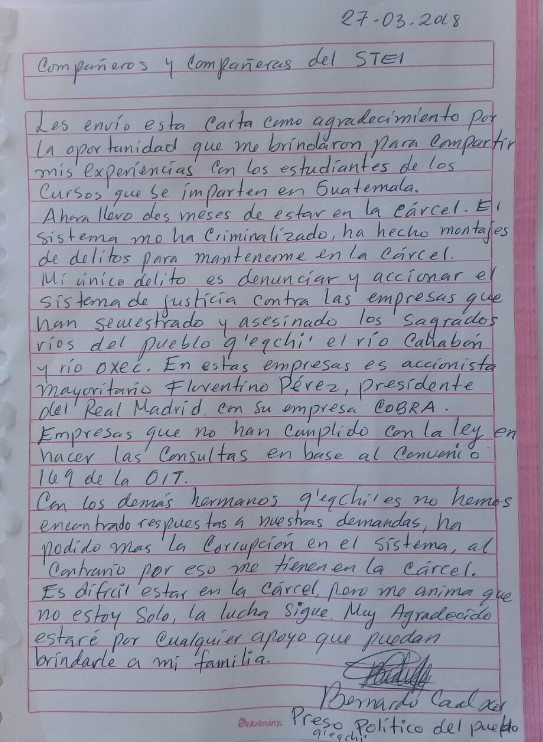 27-03.2018
Compañeros y Compañeras del STEI
Les envío esta Carta como agradecimiento por
la oportunidad que me brindaron para compartir
mis experiencias con los estudiantes de los
Cursos que se imparten en Guatemala.
Ahora llevo dos meses de estar en la cárcel. El
sistema me ha Criminalizado, ha hecho montajes
de delitos para mantenerme en la cárcel.
Mi único delito es denunciar y accionar el
sistema de justicia contra las empresas que
han secuestrado y asesinado los sagrados
ríos del pueblo q'eqchi' el río Cahabón
y río oxec. En estas empresas es accionista
mayoritario Florentino Pérez, presidente
del Real Madrid con su empresa COBRA.
Empresas que no han cumplido con la ley en
hacer las Consultas en base al Convenio
169 de la OIT.
Con los demás hermanos q'eqchi'es no hemos
encontrado respuestas a nuestras demandas, ha
podido mas la Corrupción en el sistema, al
contrario por eso me tienen en la cárcel.
Es difícil estar en la cárcel, pero me anima que
no estoy Solo, la lucha sigue. Muy Agradecido
estaré por cualquier apoyo que puedan
brindarle a mi familia.
Bernardo Caal Xol
Preso Político del pueblo
q'eqchi'